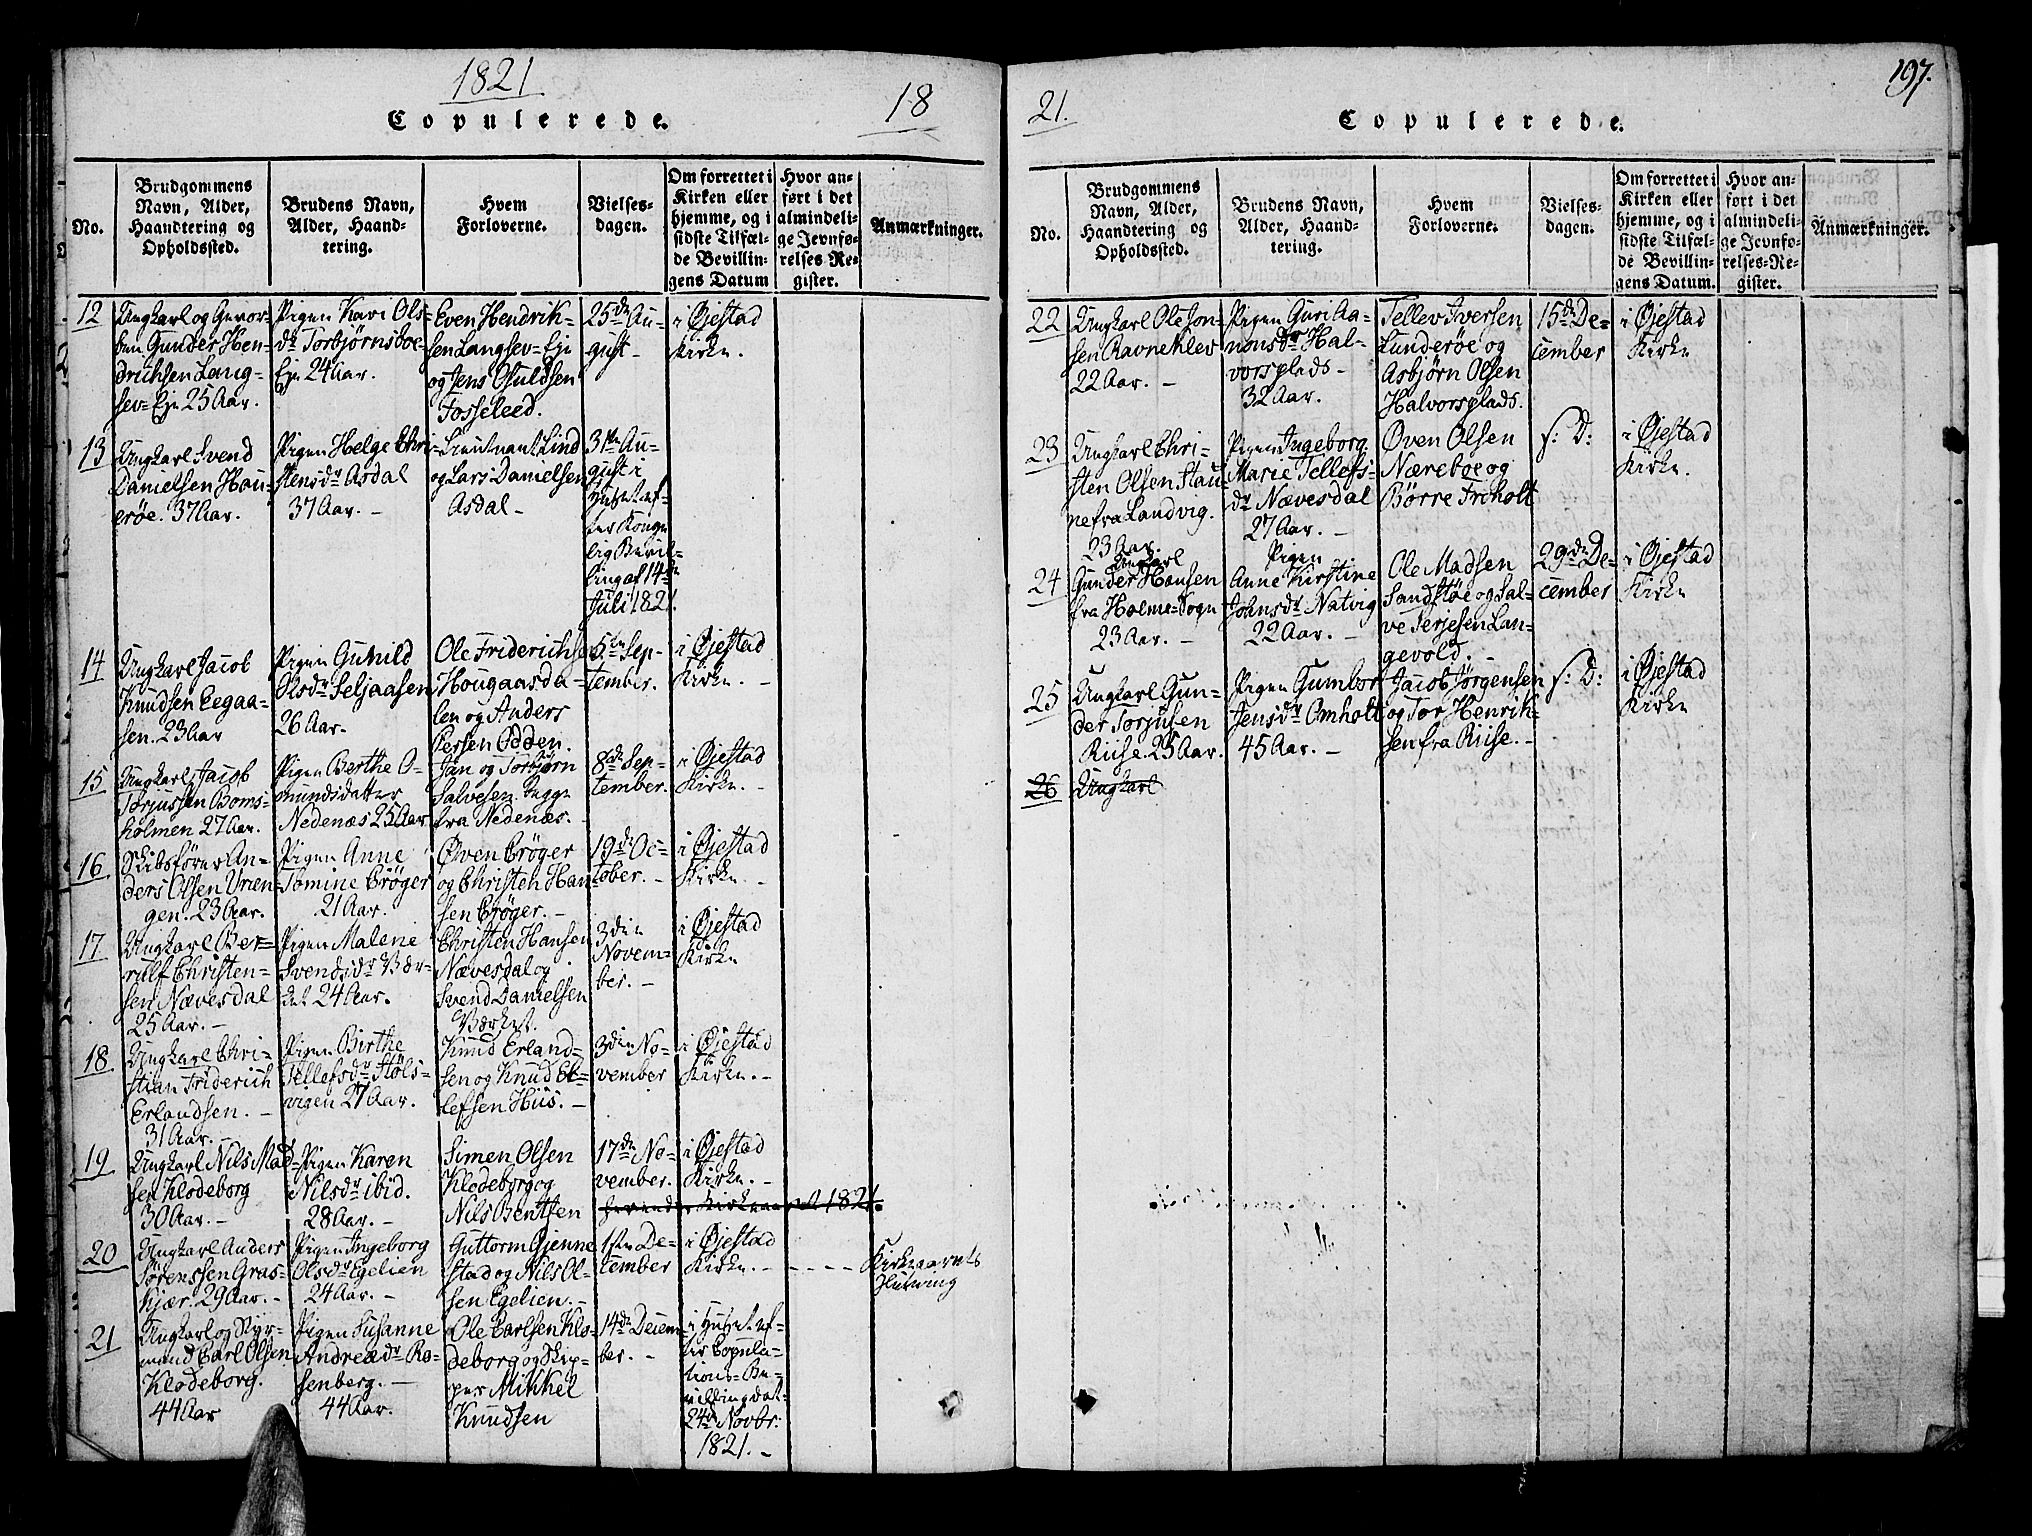 1821
18
Copulerede.
No.
Brudgommens
Navn, Alder,
Haandtering og
Opholdssted.
Brudens Navn,
Alder, Haand-
tering.
Hvem
Forloverne.
Vielses-
dagen.
Om forrettet i
Kirken eller
hjemme, og i
sidste Tilfæl-
de Bevillin-
gens Datum
Hvor an-
ført i det
almindeli-
ge Jevnfø-
relses Re-
gister.
Anmærkninger.
12
Ungkarl og Gevor-
ben Gunder Hen-
drichsen Lang-
sev=Eje 25 Aar.
Pigen Kari Ols-
dr Torbjørnsboe-
Eje 24 Aar.
Even Hendrik-
sen Langsev=Eje
og Jens Osuldsen
Fosseleed.
25de Au-
gust-
i Øjestad
Kirke.
13
Ungkarl Svend
Danielsen Hau-
erøe. 37 Aar.
Pigen Helge Chri-
stensdr Asdal
37 Aar. -
Lieutnant Lind
og Lars Danielsen
Asdal -
31te Au-
gust i
Huset ef-
ter Konge-
lig Bevil-
ling af 14de
Juli 1821.
14
Ungkarl Jacob
Knudsen Eegaa-
sen. 23 Aar
Pigen Gunild
Olsdr Seljaasen
26 Aar.
Ole Friderichsen
Hougaasda-
len og Anders
Persen Odden.
5te Sep-
tember.
i Øjestad
Kirke. -
15
Ungkarl Jacob
Torjussen Boms-
holmen 27 Aar.
Pigen Berthe O-
smundsdatter
Nedenæs 25 Aar
Jan og Torbjørn
Salvesen begge
fra Nedenæs.
8de Sep-
tember.
i Øjestad
Kirke. -
16
Skibsfører An-
ders Olsen Vren-
gen. 23 Aar.
Pigen Anne
Tomine Crøger
21 Aar.
Øven Crøger
og Christen Han-
sen Crøger. -
19de Oc-
tober. -
i Øjestad
Kirke. -
17
Ungkarl Ber-
rulf Christen-
sen Nævesdal
25 Aar. -
Pigen Malene
Svendsdr Vær-
ket 24 Aar.
Christen Hansen
Nævesdal og
Svend Danielsen
Værket.
3die
Novem-
ber. -
i Øjestad
Kirke
18
Ungkarl Chri-
stian Friderich
Erlandsen. -
31 Aar. -
Pigen Birthe
Tellefsdr Støls-
vigen 27 Aar.
Knud Erland-
sen og Knud El-
lefsen Hiis. -
3die No-
vember
i Øjestad
Kirke. -
19
Ungkarl Nils Mad-
sen Klodeborg
30 Aar. -
Pigen Karen
Nilsdr ibid.
28 Aar. -
Simen Olsen
Klodeborg og
Nils Bentsen
17de No-
vember.
i Øjestad
Kirke. -
Kirkeaaret 1821.
20
Ungkarl Anders
Sørenssen Gras-
kjær. 29 Aar. -
Pigen Ingeborg
Olsdr Egelien
24 Aar. -
Guttorm Gjenne-
stad og Nils Ol-
sen Egelien. -
1ste De-
cember
i Øjestad
Kirke. -
Kirkeaarets
Slutning
21
Ungkarl og Styr-
mand Carl Olsen
Klodeborg.
44 Aar
Pigen Susanne
Andreædr Ro-
senberg. -
44 Aar.
Ole Carlsen Klo-
deborg og Skip-
per Mikkel
Knudsen
14de Decem-
ber. -
i Huset ef-
ter Copula-
tions=Be-
villing dat.
24de Novbr.
1821. -
197.
21.
Copulerede.
No.
Brudgommens
Navn, Alder,
Haandtering og
Opholdssted.
Brudens Navn,
Alder, Haand-
tering.
Hvem
Forloverne.
Vielses-
dagen.
Om forrettet i
Kirken eller
hjemme, og i
sidste Tilfæl-
de Bevillin-
gens Datum.
Hvor an-
ført i det
almindeli-
ge Jevnfø-
relses-Re-
gister.
Anmærkninger.
22
Ungkarl Ole Jon-
sen Ravneklev
22 Aar. -
Pigen Guri Aa-
nonsdr Hal-
vorsplads-
32 Aar.
Tellev Iversen
Lunderøe og
Asbjørn Olsen
Halvorsplads.
15de De-
cember
i Øjestad
Kirke
23
Ungkarl Chri-
sten Olsen Stau-
ne fra Landvig.
23 Aar.
Pigen Ingeborg
Marie Tellefs-
dr Nævesdal
27 Aar. -
Øven Olsen
Næreboe og
Børre Froholt
s: D:
i Øjestad
Kirke.
24
Ungkarl
Gunder Hansen
fra Holme=Sogn
23 Aar. -
Pigen
Anne Kirstine
Johnsdr Natvig
22 Aar. -
Ole Madsen
Sandstøe og Sal-
ve Terjesen Lan-
gevold. -
29de De-
cember
i Øjestad
Kirke
25
Ungkarl Gun-
der Torjusen
Riise. 25 Aar.
Pigen Gumbor
Jensdr Omholt
45 Aar. -
Jacob Jørgensen
og Tor Henrik-
sen fra Riise. -
s: D:
i Øjestad
Kirke
26
Ungkarl